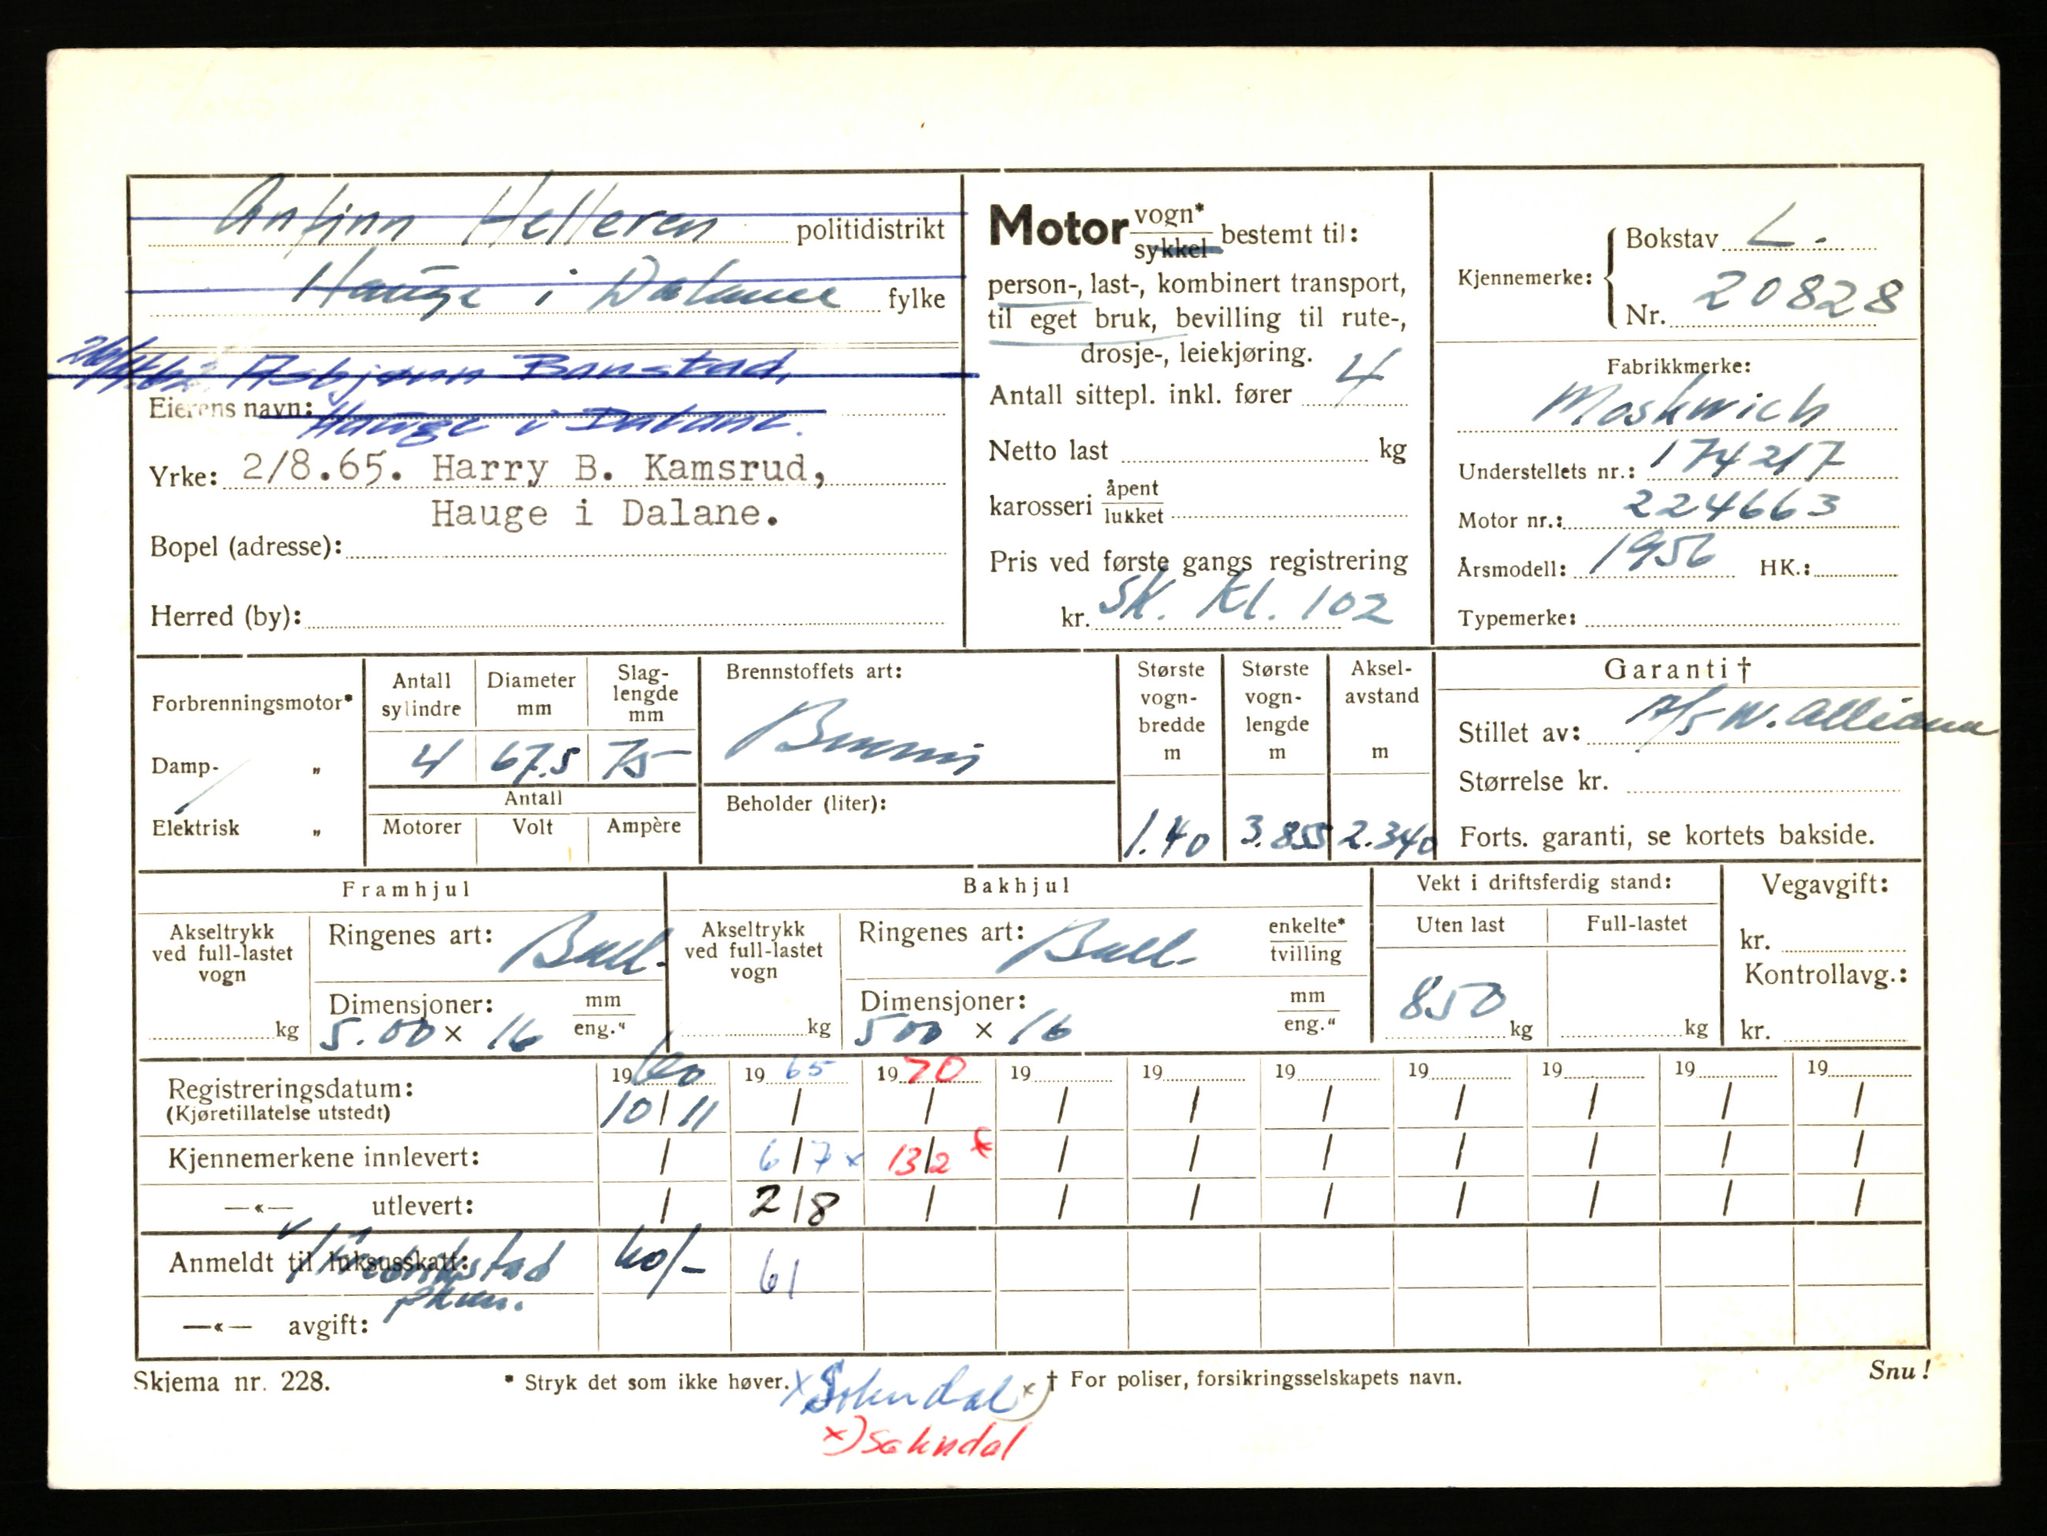 Anfinn Helleren politidistrikt
Hauge i Dalane fylke
Asbjønn Banstad,
Eierens navn: Hauge i Dalane.
Yrke: 2/8.65. Harry B. Kamsrud,
Hauge i Dalane.
Bopel (adresse):
Herred (by):
Motor vogn* / sykkel bestemt til:
person-, last-, kombinert transport,
til eget bruk, bevilling til rute-,
drosje-, leiekjøring.
Antall sittepl. inkl. fører 4
Netto last kg
karosseri åpent / lukket
Pris ved første gangs registrering
kr. SK. Kl. 102
Kjennemerke: Bokstav L.
Nr. 20828
Fabrikkmerke:
Moskwich
Understellets nr.: 174217
Motor nr.: 224663
Årsmodell: 1956 HK.:
Typemerke:
Forbrenningsmotor*
Damp- „
Elektrisk „
Antall sylindre 4
Diameter mm 67.5
Slag-lengde mm 75
Antall
Motorer Volt Ampère
Brennstoffets art:
Bensin
Beholder (liter):
Største vogn-bredde m 1.40
Største vogn-lengde m 3.855
Aksel-avstand m 2.340
Garanti †
Stillet av: A/S N. Alliance
Størrelse kr.
Forts. garanti, se kortets bakside.
Framhjul
Akseltrykk ved full-lastet vogn kg
Ringenes art: Ball.
Dimensjoner: mm / eng."
5.00 × 16
Bakhjul
Akseltrykk ved full-lastet vogn kg
Ringenes art: Ball. enkelte* / tvilling
Dimensjoner: mm / eng."
500 × 16
Vekt i driftsferdig stand:
Uten last Full-lastet
850 kg kg
Vegavgift:
kr.
Kontrollavg.:
kr.
19 60 19 65 19 70 19 19 19 19 19 19 19
Registreringsdatum: 10/11 / / / / / / / / /
(Kjøretillatelse utstedt)
Kjennemerkene innlevert: / 6/7 x 13/2 x / / / / / / /
—«— utlevert: / 2/8 / / / / / / / /
Anmeldt til luksusskatt: 60/- 61
Fredrikstad
—«— avgift:
Skjema nr. 228. * Stryk det som ikke høver. † For poliser, forsikringsselskapets navn. Snu!
x Sokndal x)
x) Sokndal